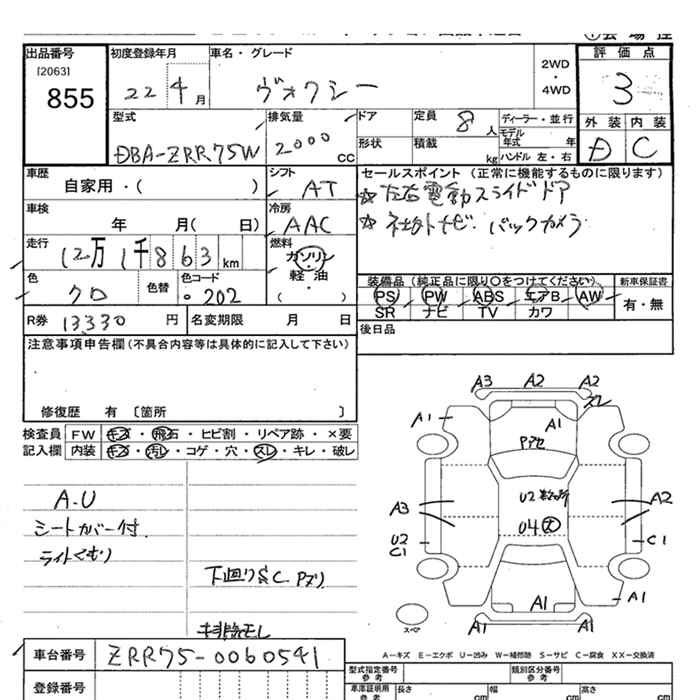 出品番号
[2063]
855
初度登録年月
22 4月
車名・グレード
ヴォクシー
2WD
・
4WD
評価点
3
外装 内装
D C
型式
DBA-ZRR75W
排気量
2000
CC
ドア
形状
定員
8人
積載
kg
ディーラー・並行
モデル
年式 年
ハンドル 左・右
車歴
自家用・( )
シフト
AT
セールスポイント (正常に機能するものに限ります)
☆左右電動スライドドア
☆社外ナビ バックカメラ
車検
年 月( 日)
冷房
AAC
走行
12万1千863km
燃料
ガソリン
軽油
( )
色
クロ
色替
色コード
202
装備品 (純正品に限り○をつけてください)
PS PW ABS エアB AW
SR ナビ TV カワ
新車保証書
有・無
R券 13330 円
名変期限 月 日
後日品
注意事項申告欄 (不具合内容等は具体的に記入して下さい)
修復歴 有 〔箇所 〕
検査員
記入欄
FW キズ・飛石・ヒビ割・リペア跡・×要
内装 キズ・汚レ・コゲ・穴・スレ・キレ・破レ
A.U
シートカバー付.
ライトくもり
下廻りS&C. Pズリ
A3 A2 A2
スレ
A1
A1
A3
U2
C1
U4 大
A2
C1
A1
A1
A1 A1
スペア
A-キズ E-エクボ U-凹み W-補修跡 S-サビ C-腐食 XX-交換済
車台番号
ZRR75-0060541
登録番号
型式指定番号
参考
類別区分番号
参考
車庫証明用
参考
長さ cm
幅 cm
高さ cm